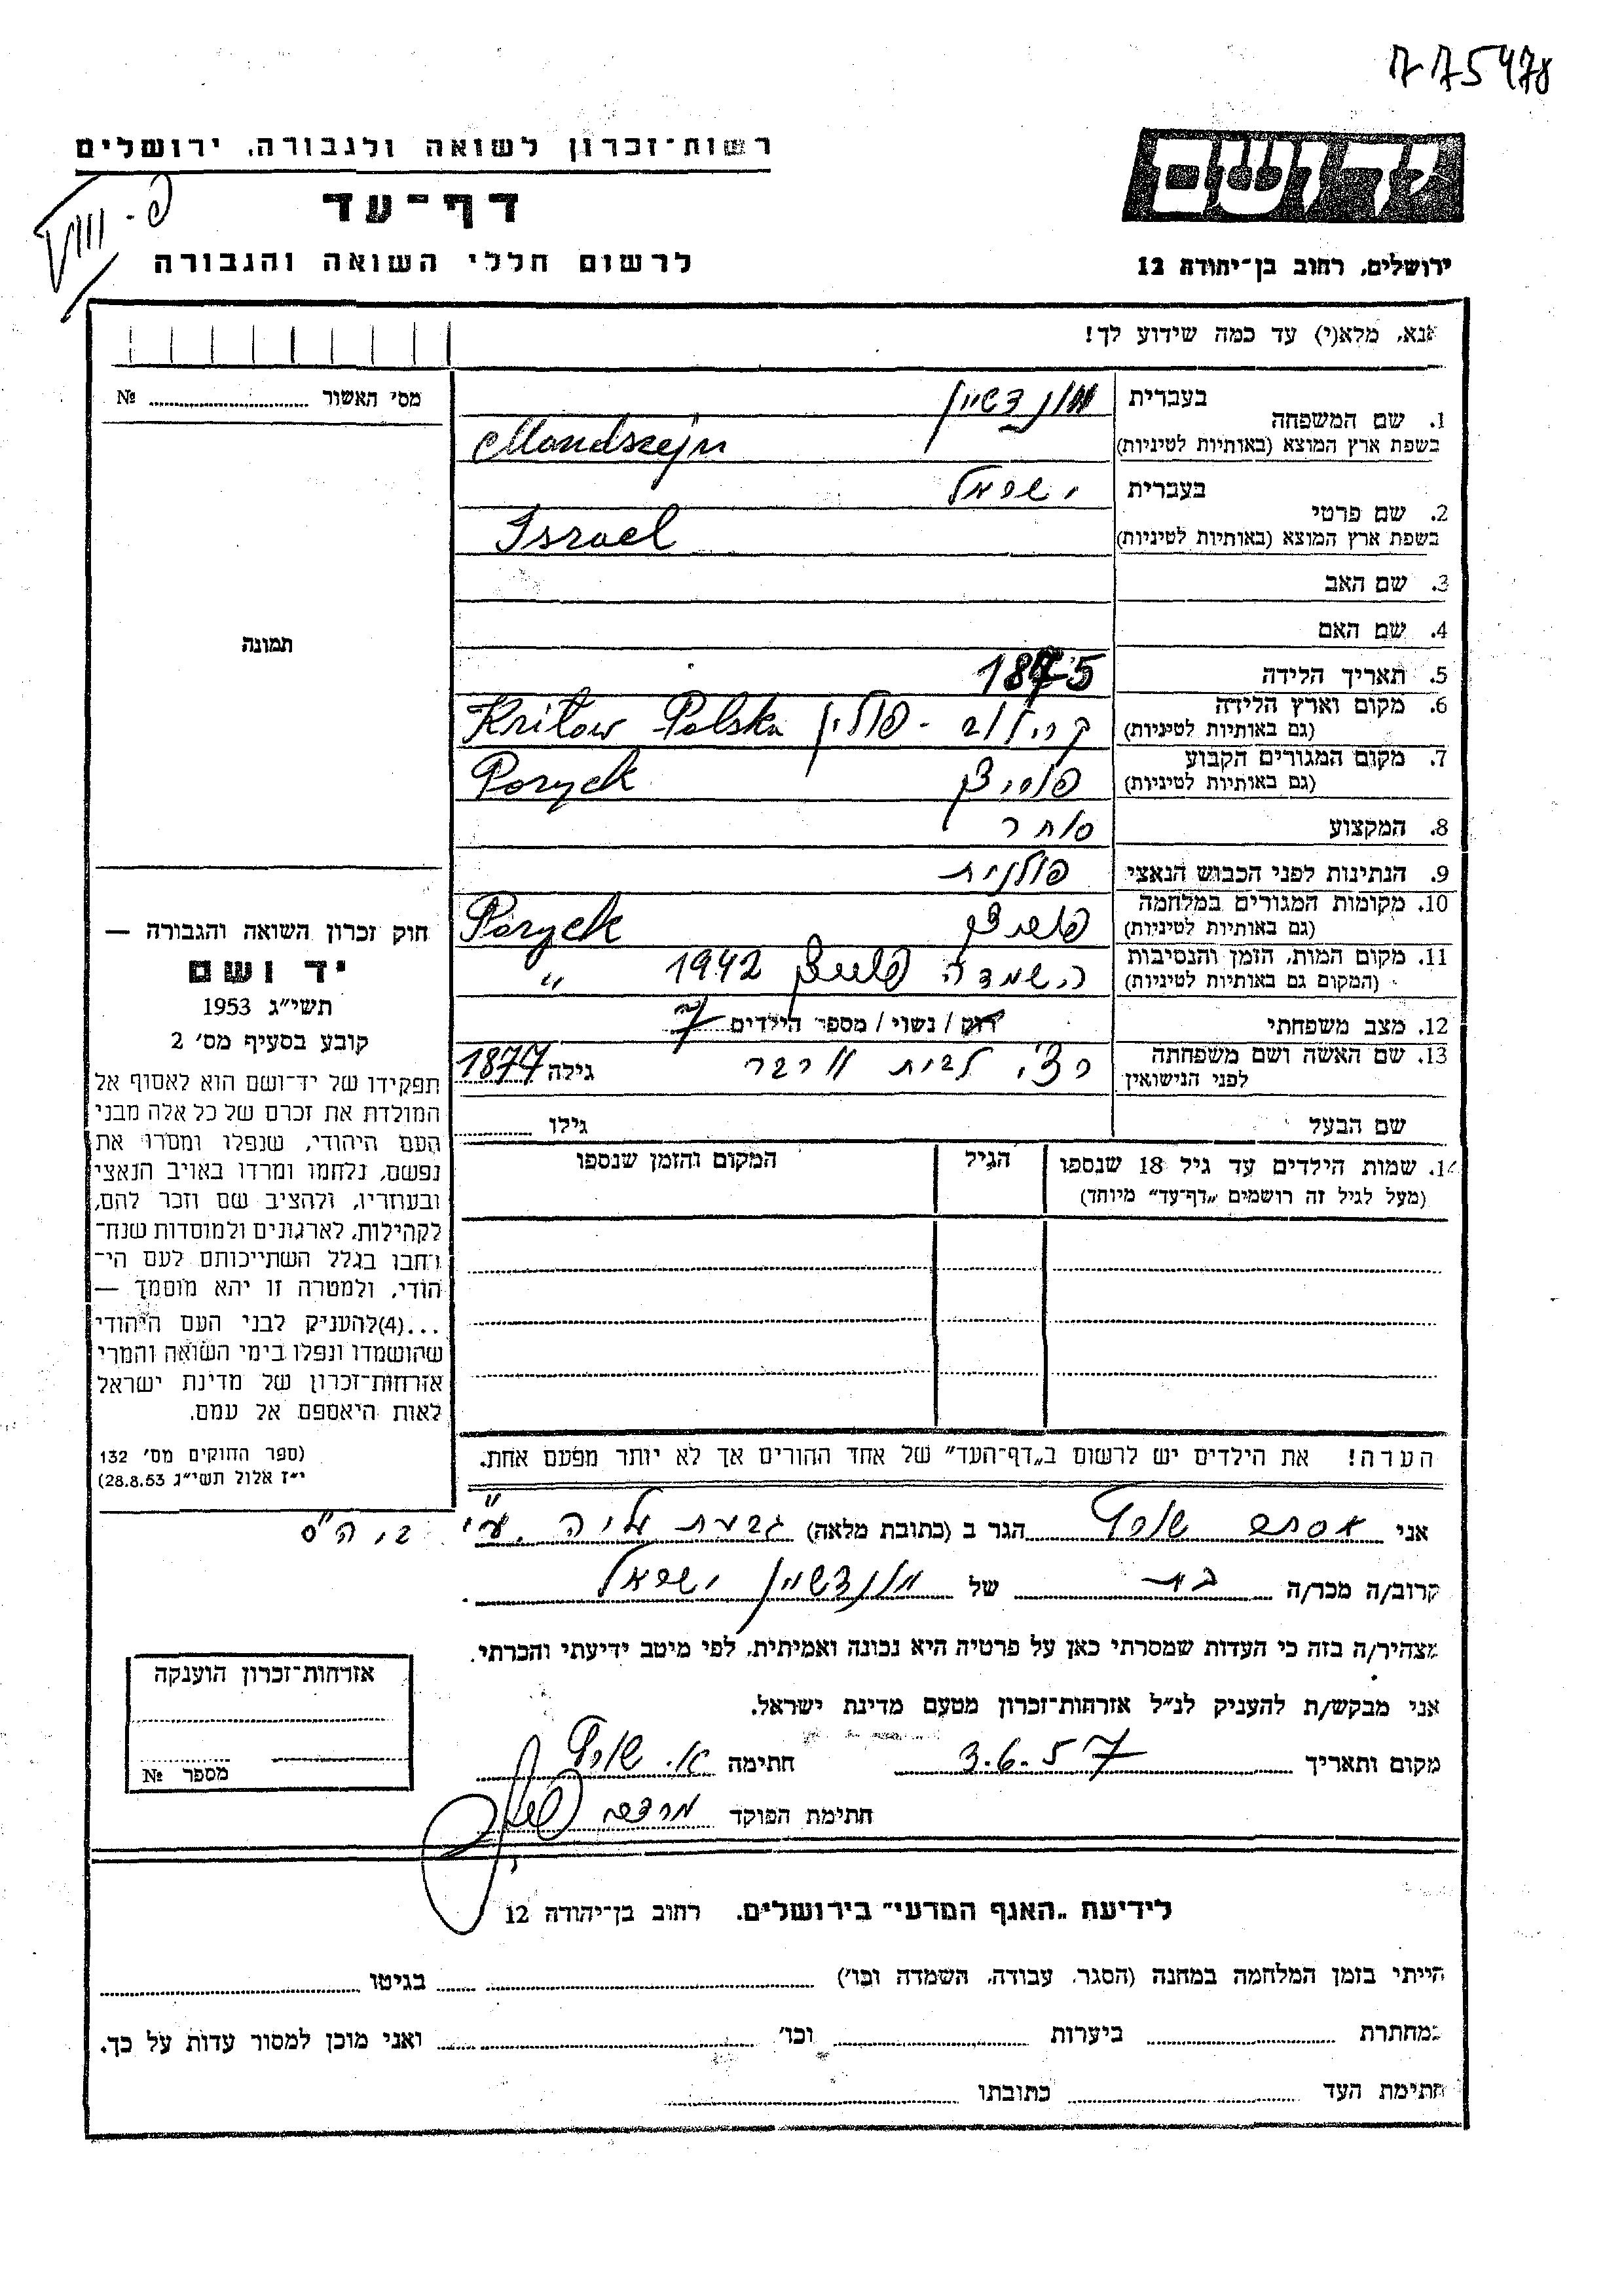 775478
רשות־זכרון לשואה ולגבורה, ירושלים
דף־עד
לרשום חללי השואה והגבורה
ירושלים, רחוב בן־יהודה 12
אנא, מלא(י) עד כמה שידוע לך!
מס׳ האשור № 
1. שם המשפחה
בעברית
בשפת ארץ המוצא (באותיות לטיניות)
Mandszejn
2. שם פרטי
בעברית ישראל
בשפת ארץ המוצא (באותיות לטיניות) Israel
3. שם האב
4. שם האם
5. תאריך הלידה 1875
6. מקום וארץ הלידה
(גם באותיות לטיניות) קרילוב - פולין Krilow Polska
7. מקום המגורים הקבוע
(גם באותיות לטיניות) פוריצק Poryck
8. המקצוע סוחר
9. הנתינות לפני הכבוש הנאצי פולנית
10. מקומות המגורים במלחמה
(גם באותיות לטיניות) פוריצק Poryck
11. מקום המות, הזמן והנסיבות
(המקום גם באותיות לטיניות) השמדה פוריצק 1942 "
12. מצב משפחתי רוק / נשוי / מספר הילדים 7
13. שם האשה ושם משפחתה
לפני הנישואין לבית גילה 1877
שם הבעל גילו
14. שמות הילדים עד גיל 18 שנספו
(מעל לגיל זה רושמים „דף־עד״ מיוחד)
הגיל
המקום והזמן שנספו
הערה! את הילדים יש לרשום ב„דף־העד״ של אחד ההורים אך לא יותר מפעם אחת.
תמונה
חוק זכרון השואה והגבורה —
יד ושם
תשי״ג 1953
קובע בסעיף מס׳ 2
תפקידו של יד־ושם הוא לאסוף אל
המולדת את זכרם של כל אלה מבני
העם היהודי, שנפלו ומסרו את
נפשם, נלחמו ומרדו באויב הנאצי
ובעוזריו, ולהציב שם וזכר להם,
לקהילות, לארגונים ולמוסדות שנח־
רחבו בגלל השתייכותם לעם הי־
הודי, ולמטרה זו יהא מוסמך —
...(4)להעניק לבני העם היהודי
שהושמדו ונפלו בימי השואה והמרי
אזרחות־זכרון של מדינת ישראל
לאות היאספם אל עמם.
(ספר החוקים מס׳ 132
י״ז אלול תשי״ג 28.8.53)
אני אסתר הגר ב (כתובת מלאה) גבעת
קרוב/ה מכר/ה בת של ישראל
מצהיר/ה בזה כי העדות שמסרתי כאן על פרטיה היא נכונה ואמיתית, לפי מיטב ידיעתי והכרתי.
אני מבקש/ת להעניק לנ״ל אזרחות־זכרון מטעם מדינת ישראל.
מקום ותאריך 3.6.57 חתימה א.
חתימת הפוקד
אזרחות־זכרון הוענקה
מספר №
לידיעת „האגף המדעי״ בירושלים, רחוב בן־יהודה 12
הייתי בזמן המלחמה במחנה (הסגר, עבודה, השמדה וכו׳) בגיטו
במחתרת ביערות וכו׳ ואני מוכן למסור עדות על כך.
חתימת העד כתובתו